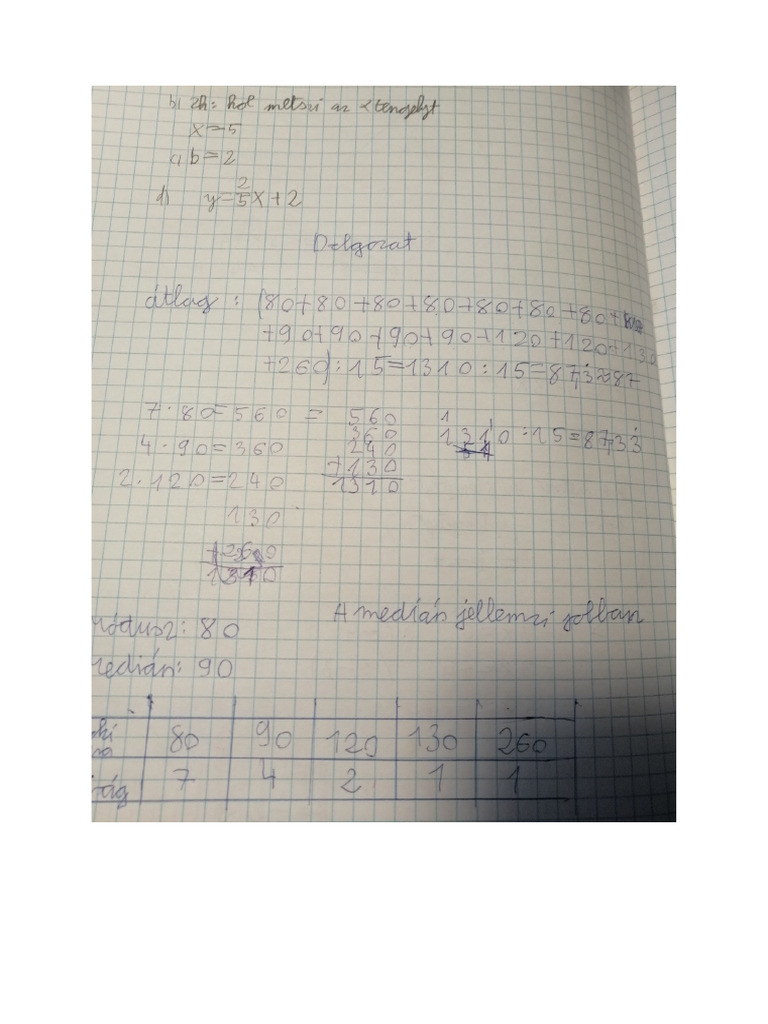 b, zh: hol metszi az x tengelyt
x=-5
c, b=2
d) y=2/5x+2
Dolgozat
átlag: (80+80+80+80+80+80+80+
+90+90+90+90+120+120+130
+260):15=1310:15=87,3≈87
7·80=560 = 560
360
4·90=360 240
+130
2·120=240 1310
1310:15=87,33
130
+260
1310
módusz: 80 A medián jellemzi jobban
medián: 90
80 90 120 130 260
7 4 2 1 1